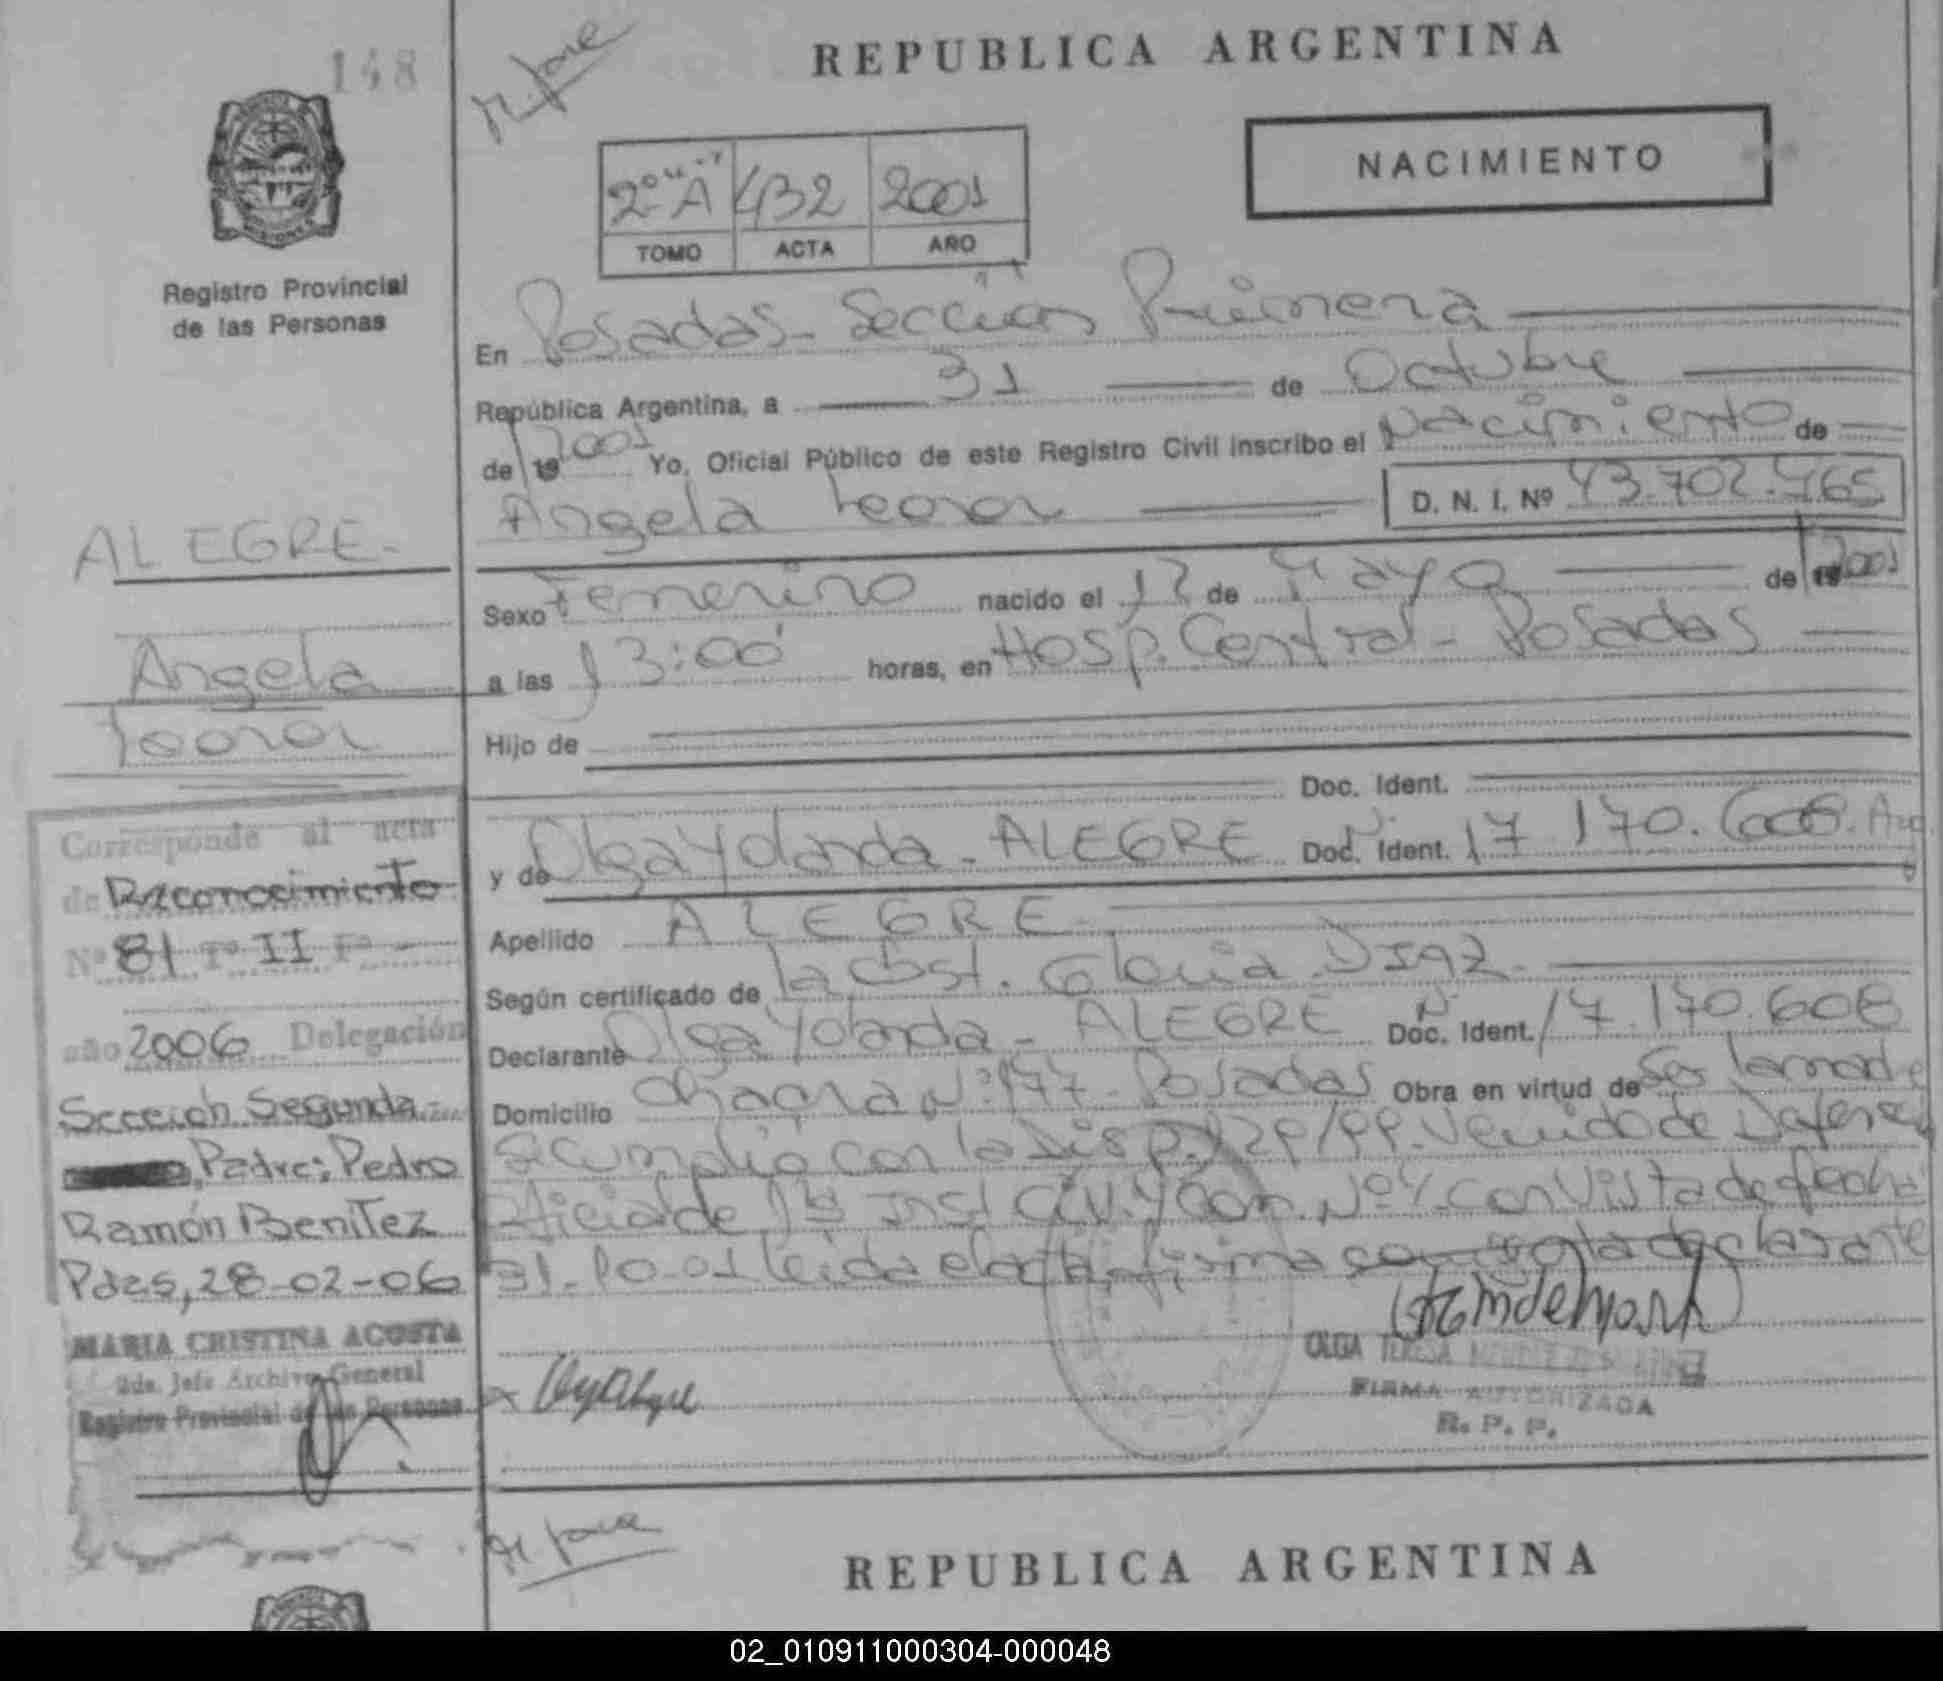 148
REPUBLICA ARGENTINA
NACIMIENTO
2º "A" 432 2001
TOMO ACTA AÑO
MISIONES
Registro Provincial
de las Personas
En Posadas - Sección Primera
República Argentina, a 31 de Octubre
de 19 2001 Yo, Oficial Público de este Registro Civil inscribo el Nacimiento de
Angela Leonor D. N. I. Nº 43.702.465
ALEGRE -
Angela
Leonor
Sexo Femenino nacido el 12 de Mayo de 19 2001
a las 13:00 horas, en Hosp. Central - Posadas
Hijo de
Doc. Ident.
y de Olga Yolanda - ALEGRE Doc. Ident. Nº 17.170.608. Arg
Apellido ALEGRE -
Según certificado de la Obst. Gloria DIAZ -
Declarante Olga Yolanda - ALEGRE Doc. Ident. Nº 17.170.608
Domicilio Chacra Nº 177 - Posadas Obra en virtud de ser la madre
Se cumplió con la Disp. 129/99. Venido de
de 1ª Inst. Civ. y Com. Nº 4 con Vista de fecha
31-10-01 leida el acta firma la declarante
OLGA TERESA
FIRMA AUTORIZADA
R. P. P.
Corresponde al acta
de Reconocimiento
Nº 81 Tº II Fº -
año 2006 Delegación
Sección Segunda
Padre: Pedro
Ramón Benitez
Pdas, 28-02-06
MARIA CRISTINA ACOSTA
2da. Jefe Archivo General
Registro Provincial de las Personas
REPUBLICA ARGENTINA
02_010911000304-000048